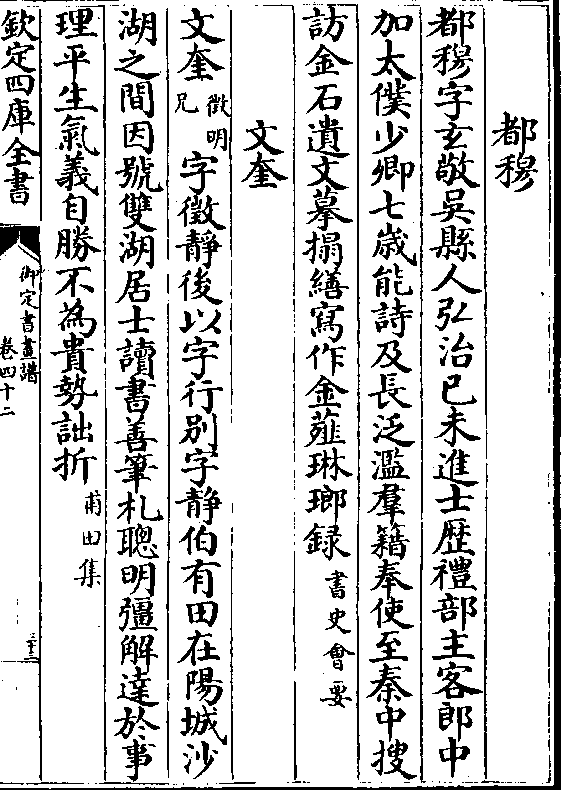 都穆
都穆字玄敬吳縣人弘治己未進士歴禮部主客郎中
加太僕少卿七歲能詩及長泛濫羣籍奉使至秦中搜
訪金石遺文摹搨繕寫作金薤琳瑯録書史會要
文奎
文奎徵明兄字徵靜後以字行别字静伯有田在陽城沙
湖之間因號雙湖居士讀書善筆札聰明彊解達於事
理平生氣義自勝不為貴勢詘折甫田集
欽定四庫全書
御定書畫譜
卷四十二
三十三